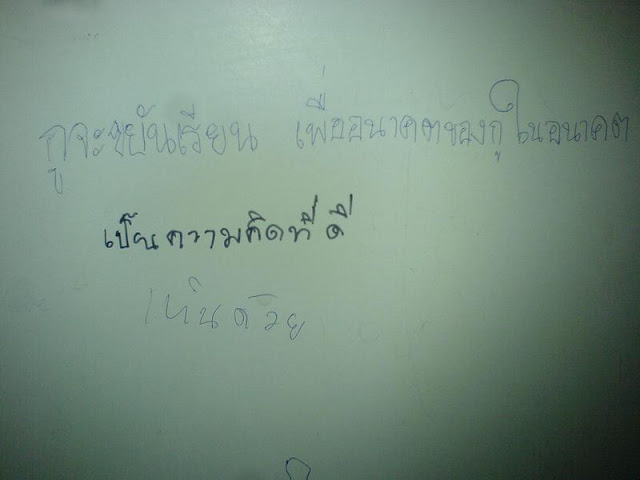 กูจะขยันเรียน เพื่ออนาคตของกู ในอนาคต
เป็นความคิดที่ดี
เห็นด้วย